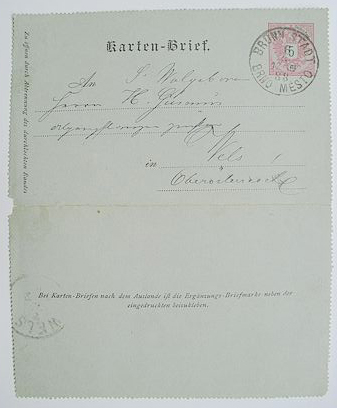 Zu öffnen durch Abtrennung des durchlochten Randes.
Karten-Brief.
BRÜNN STADT
BRNO MĚSTO
An
Herrn H.
in Wels!
Oberösterreich
Bei Karten-Briefen nach dem Auslande ist die Ergänzungs-Briefmarke neben der
eingedruckten beizukleben.
WELS